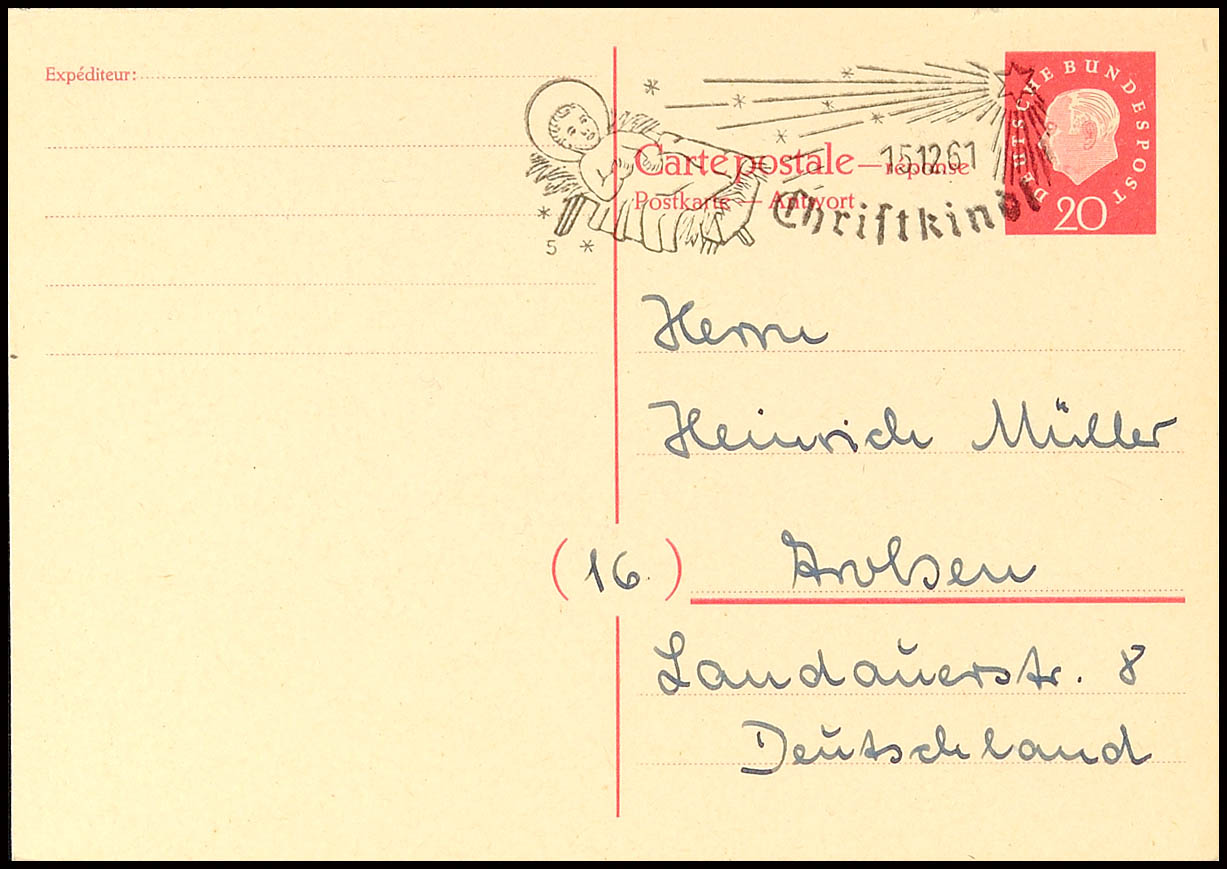 Expéditeur:
Carte postale — réponse
Postkarte — Antwort
15.12.61
Christkindl
5
DEUTSCHE BUNDESPOST
20
Herrn
Heinrich Müller
(16) Arolsen
Landauerstr. 8
Deutschland